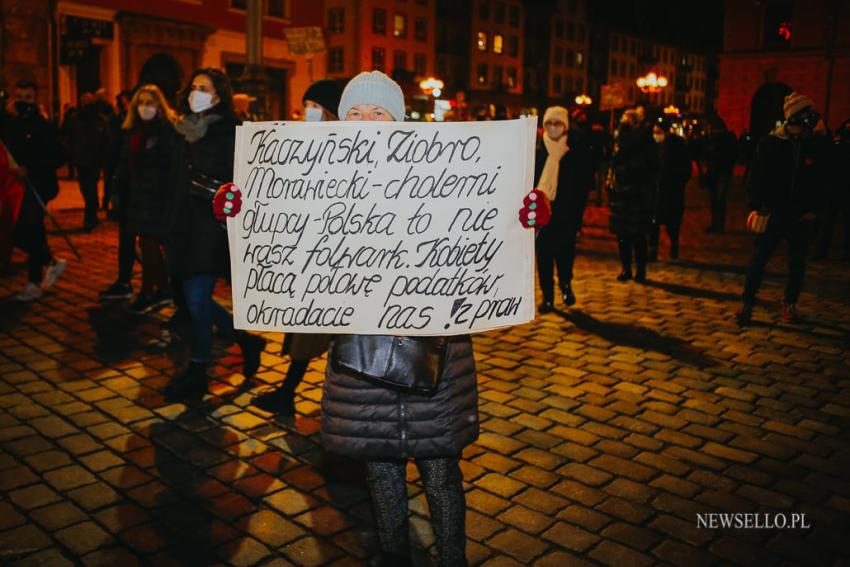 Kaczyński, Ziobro,
Morawiecki-cholerni
głupcy-Polska to nie
wasz folwark. Kobiety
płacą połowę podatków,
okradacie nas ! z praw
NEWSELLO.PL